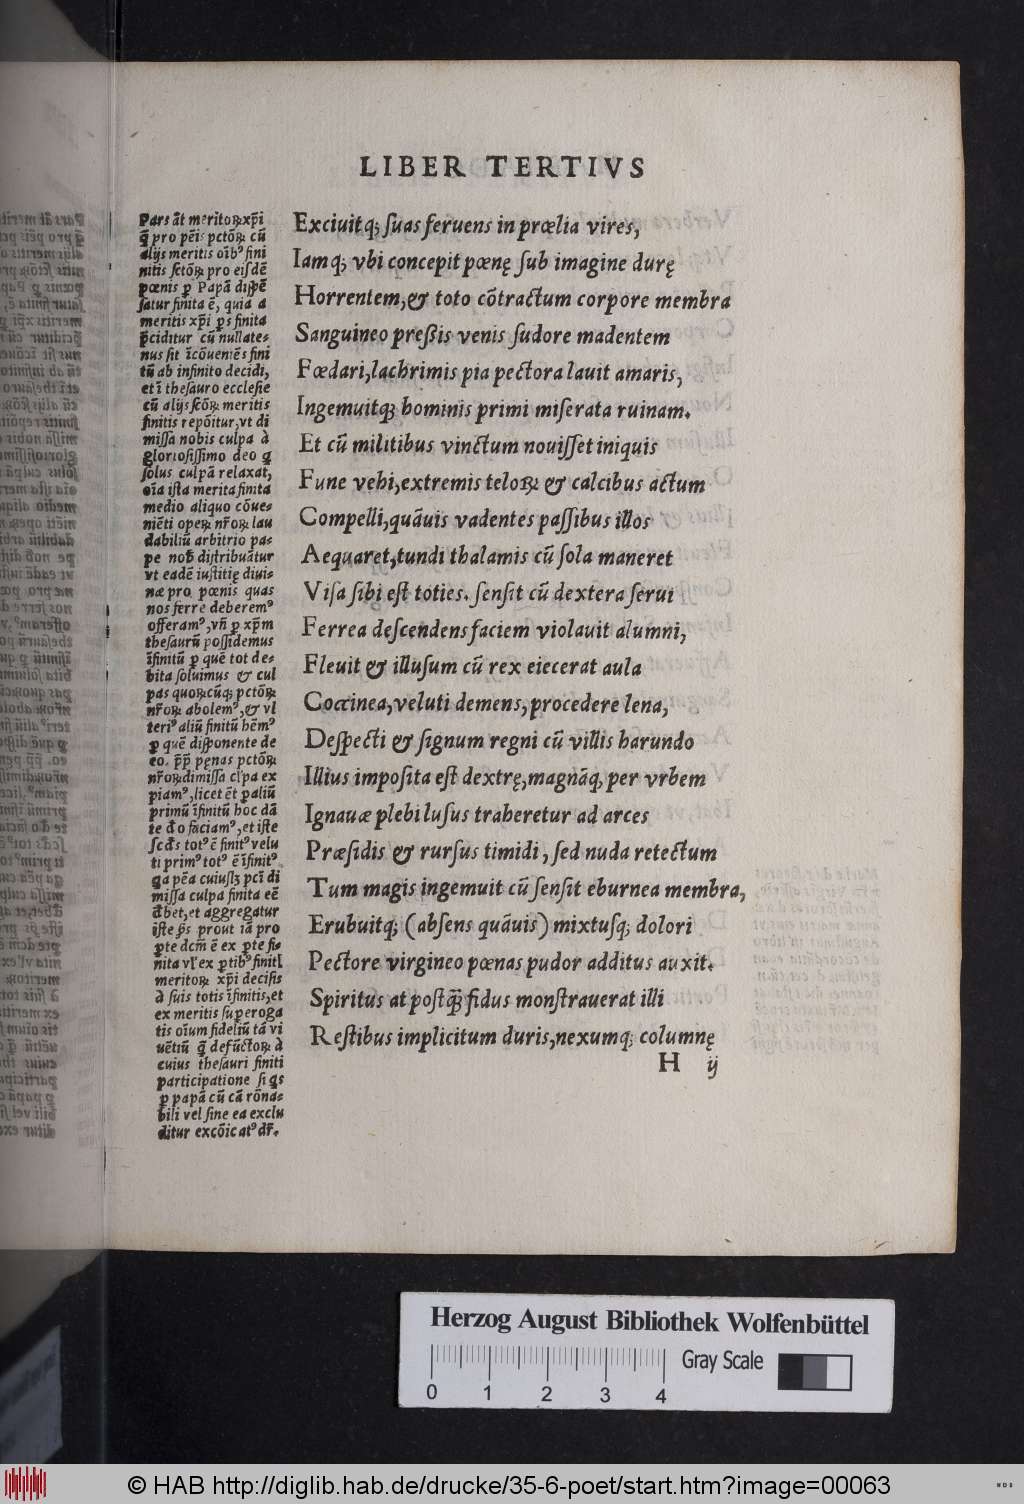 LIBER TERTIVS
Pars ãt meritoꝝ xp̃i
q̃ pro pẽis pctõꝝ cũ
alijs meritis oĩbꝰ fini
nitis sctõꝝ pro eisdẽ
pœnis ꝑ Papã dispẽ
satur finita ẽ, quia a
meritis xp̃i ꝑs finita
p̃ciditur cũ nullate⸗
nus sit ĩcõueniẽs fini
tũ ab infinito decidi,
et ĩ thesauro ecclesie
cũ alijs scõꝝ meritis
finitis repõitur, vt di
missa nobis culpa à
gloriosissimo deo q̃
solus culpã relaxat,
oĩa ista merita finita
medio aliquo cõue⸗
niẽti opeꝝ nr̃oꝝ lau
dabiliũ arbitrio pa⸗
pe nob̃ distribuãtur
vt eadẽ iustitię diui⸗
næ pro pœnis quas
nos ferre deberemꝰ
offeramꝰ, vñ ꝑ xp̃m
thesaurũ possidemus
ĩfinitũ ꝑ quẽ tot de⸗
bita soluimus & cul
pas quoꝝcũq; pctõꝝ
nr̃oꝝ abolemꝰ, & vl
teriꝰ aliũ finitũ hẽmꝰ
ꝑ quẽ disponente de
eo. pp̃ pęnas pctõꝝ
nr̃oꝝ dimissa cl̃pa ex
piamꝰ, licet ẽt ꝑ aliũ
primũ ĩfinitũ hoc dã
te d̃o faciamꝰ, et iste
scd̃s totꝰ ẽ finitꝰ velu
ti primꝰ totꝰ ẽ ĩfinitꝰ
qa pẽa cuiuslꝫ pcĩ di
missa culpa finita eẽ
d̃bet, et aggregatur
iste ꝑs prout iã pro
ꝑte dcm̃ ẽ ex ꝑte fi⸗
nita vl̃ ex ꝑtibꝰ finitl
meritoꝝ xp̃i decisis
à suis totis ĩfinitis, et
ex meritis superoga
tis oĩum fideliũ tã vi
uẽtiũ q̃ defũctoꝝ à
cuius thesauri finiti
participatione si qs
ꝑ papã cũ cã rõna⸗
bili vel sine ea exclu
ditur excõicatꝰ dr̃.
Exciuitq; suas feruens in prœlia vires,
Iamq; vbi concepit pœnę sub imagine durę
Horrentem, & toto cõtractum corpore membra
Sanguineo pressis venis sudore madentem
Fœdari, lachrimis pia pectora lauit amaris,
Ingemuitq; hominis primi miserata ruinam.
Et cũ militibus vinctum nouisset iniquis
Fune vehi, extremis teloꝝ & calcibus actum
Compelli, quãuis vadentes passibus illos
Aequaret, tundi thalamis cũ sola maneret
Visa sibi est toties. sensit cũ dextera serui
Ferrea descendens faciem violauit alumni,
Fleuit & illusum cũ rex eiecerat aula
Coccinea, veluti demens, procedere lena,
Despecti & signum regni cũ villis harundo
Illius imposita est dextrę, magnãq, per vrbem
Ignauæ plebi lusus traheretur ad arces
Præsidis & rursus timidi, sed nuda retectum
Tum magis ingemuit cũ sensit eburnea membra,
Erubuitq; (absens quãuis) mixtusq; dolori
Pectore virgineo pœnas pudor additus auxit.
Spiritus at postq̃ fidus monstrauerat illi
Restibus implicitum duris, nexumq; columnę
H ij
Herzog August Bibliothek Wolfenbüttel
Gray Scale
0 1 2 3 4
© HAB http://diglib.hab.de/drucke/35-6-poet/start.htm?image=00063